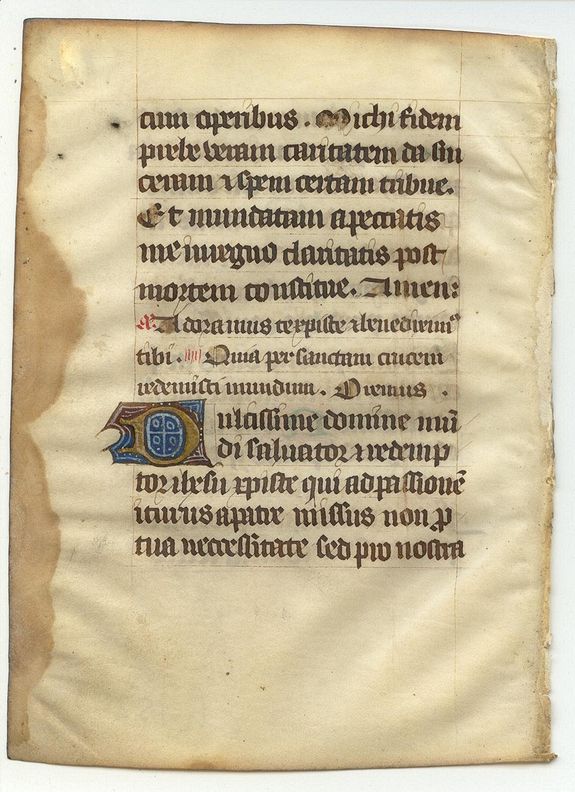 cum operibus. Michi fidem
prebe veram caritatem da sin
ceram ⁊ spem certam tribue.
Et mundatam a peccatis
me in regno claritatis post
mortem constitue. Amen:
Adoramus te xpiste ⁊ benedicim⁹
tibi. Quia per sanctam crucem
redemisti mundum. Oremus.
Dulcissime domine mū
di saluator ⁊ redemp
tor ihesu xpiste qui ad passionē
iturus a patre missus non ꝓ
tua necessitate sed pro nostra